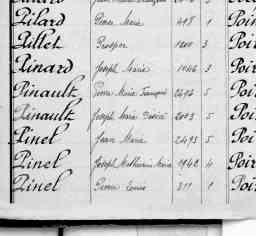 Pilard Pierre Marie 498 1 Poir
Pillet Prosper 1200 3 Poir
Pinard Joseph Marie 1046 3 Poir
Pinault Pierre Marie François 2494 5 Poir
Pinault Joseph Marie 2003 5 Poir
Pinel Jean Marie 2493 5 Poir
Pinel Joseph Mathurin Marie 1942 4 Poir
Pinel Pierre Louis 311 1 Poir